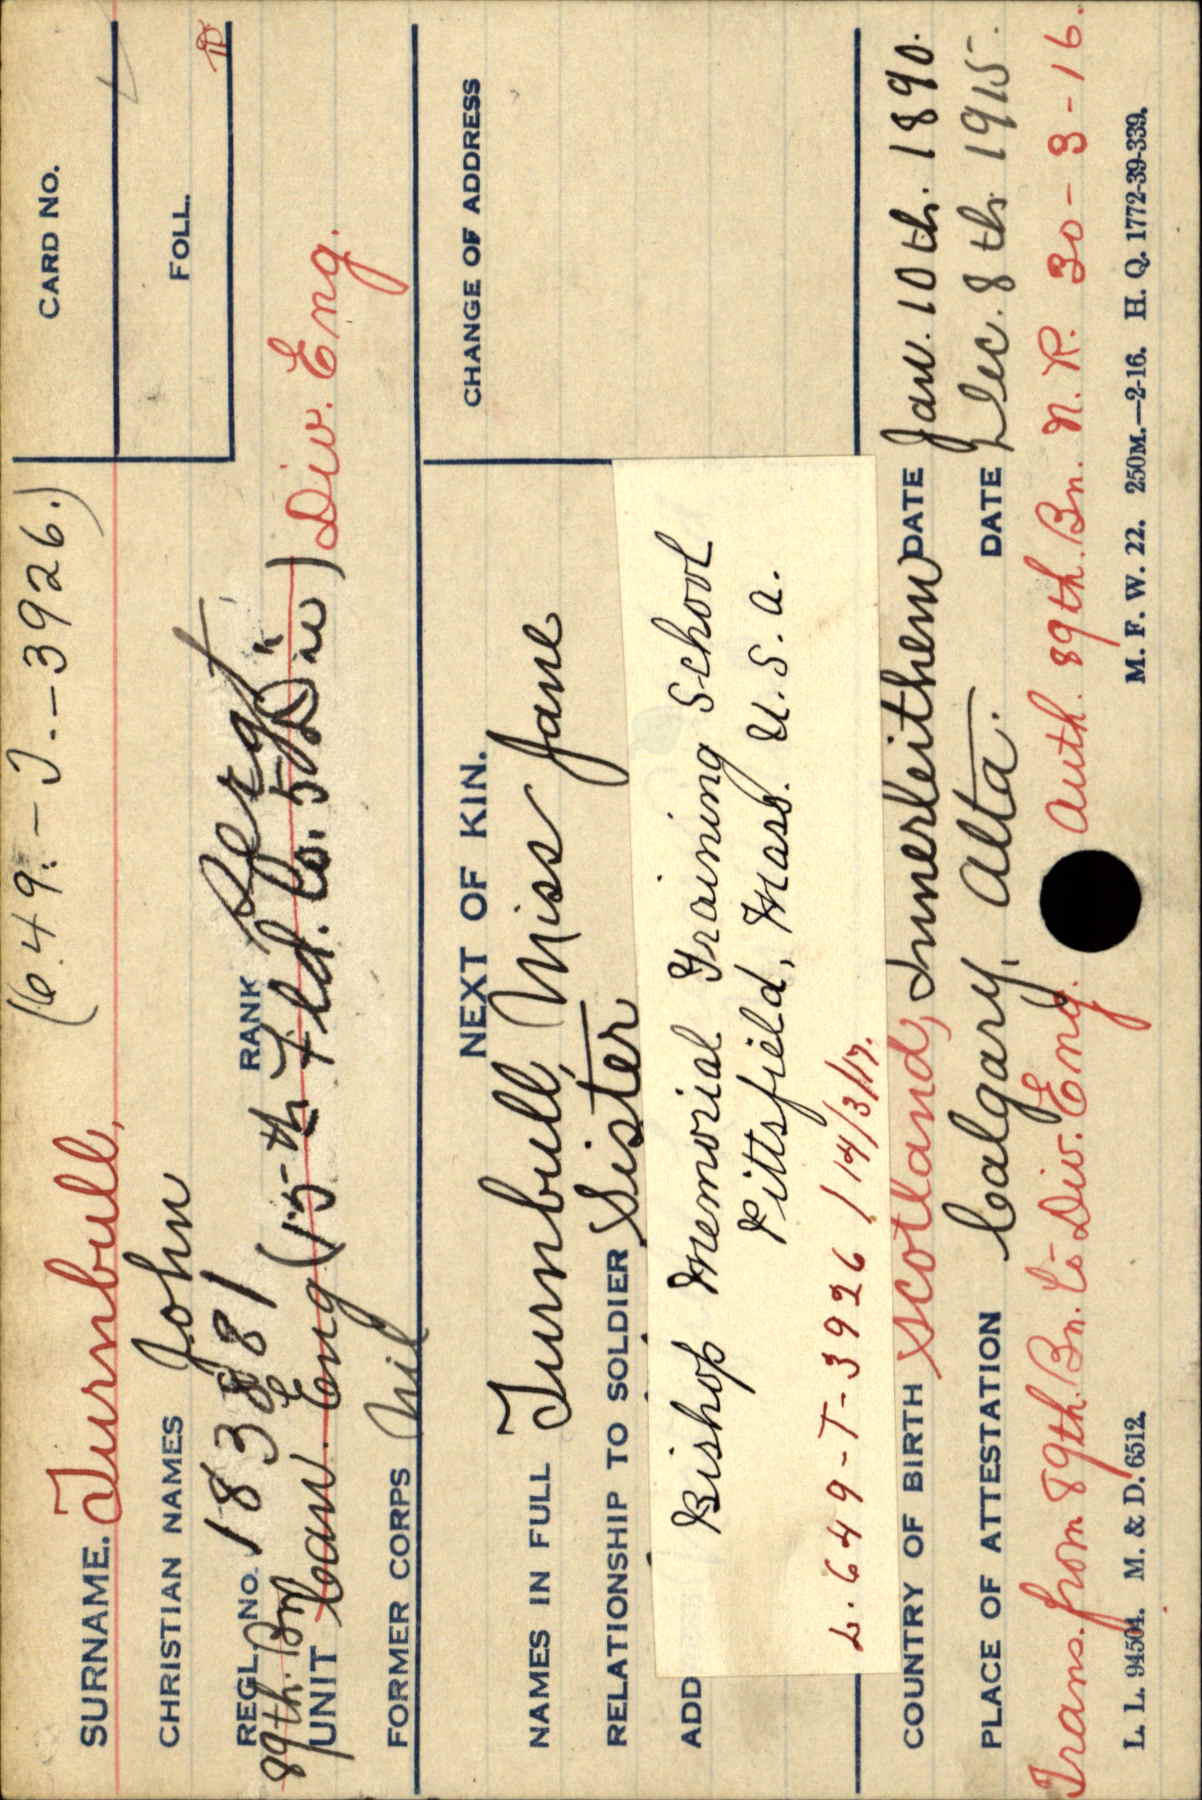 (649.-T.-3926.)
CARD NO.
SURNAME. Turnbull,
CHRISTIAN NAMES John
FOLL.
REGL. NO. 183881 RANK Sergt
89th. Bn
UNIT Can. Eng (15th Fld. Co. 5" Div) Div. Eng.
FORMER CORPS Nil
NEXT OF KIN.
CHANGE OF ADDRESS
NAMES IN FULL Turnbull, Miss Jane
RELATIONSHIP TO SOLDIER Sister
ADD
Bishop Memorial Training School
Pittsfield, Mass. U.S.A.
L. 649-T-3926 / 14/3/17.
COUNTRY OF BIRTH Scotland, Innerleithen DATE Jan. 10th. 1890.
PLACE OF ATTESTATION Calgary, Alta. DATE Dec. 8th 1915.
Trans. from 89th. Bn. to Div. Eng. Auth. 89th. Bn. N. R. 30-3-16.
L. L. 94504. M. & D. 6512. M. F. W. 22. 250M.—2-16. H. Q. 1772-39-339.